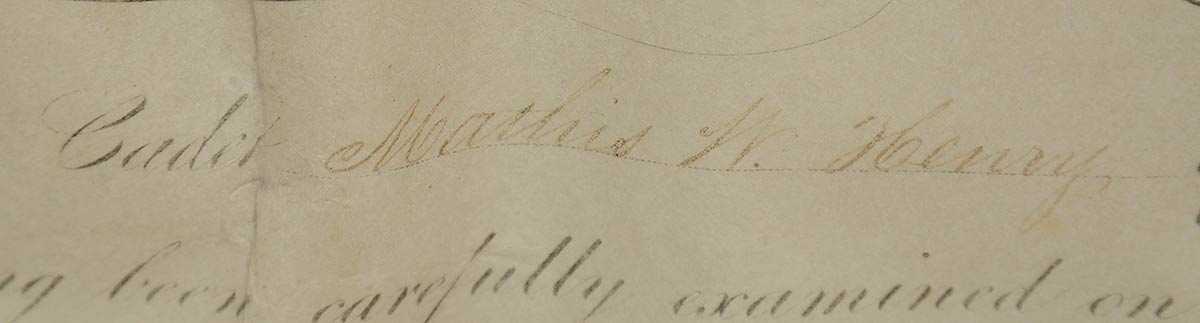 Cadet Mathis W. Henry
been carefully examined on